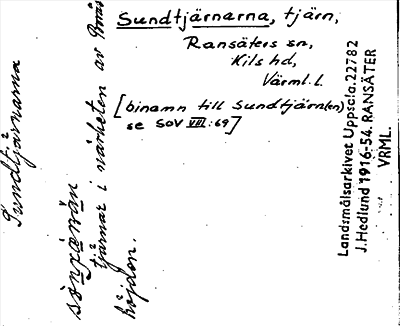 Sundtjärnarna, tjärn,
Ransäters sn,
Kils hd,
Värml. l.
[binamn till Sundtjärn(en)
se SOV VIII:69]
Sundtjärnarna
tjärnar i närheten av
höjden.
Landsmålsarkivet Uppsala. 22782
J. Hedlund 1916-54. RANSÄTER
VRML.